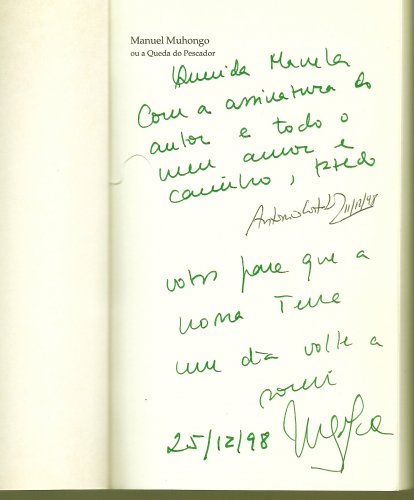 Manuel Muhongo
ou a Queda do Pescador
Querida Manela
Com a assinatura do
autor e todo o
meu amor e
carinho,
11/12/98
votos para que a
nossa Terra
um dia volte a
sorrir
25/12/98